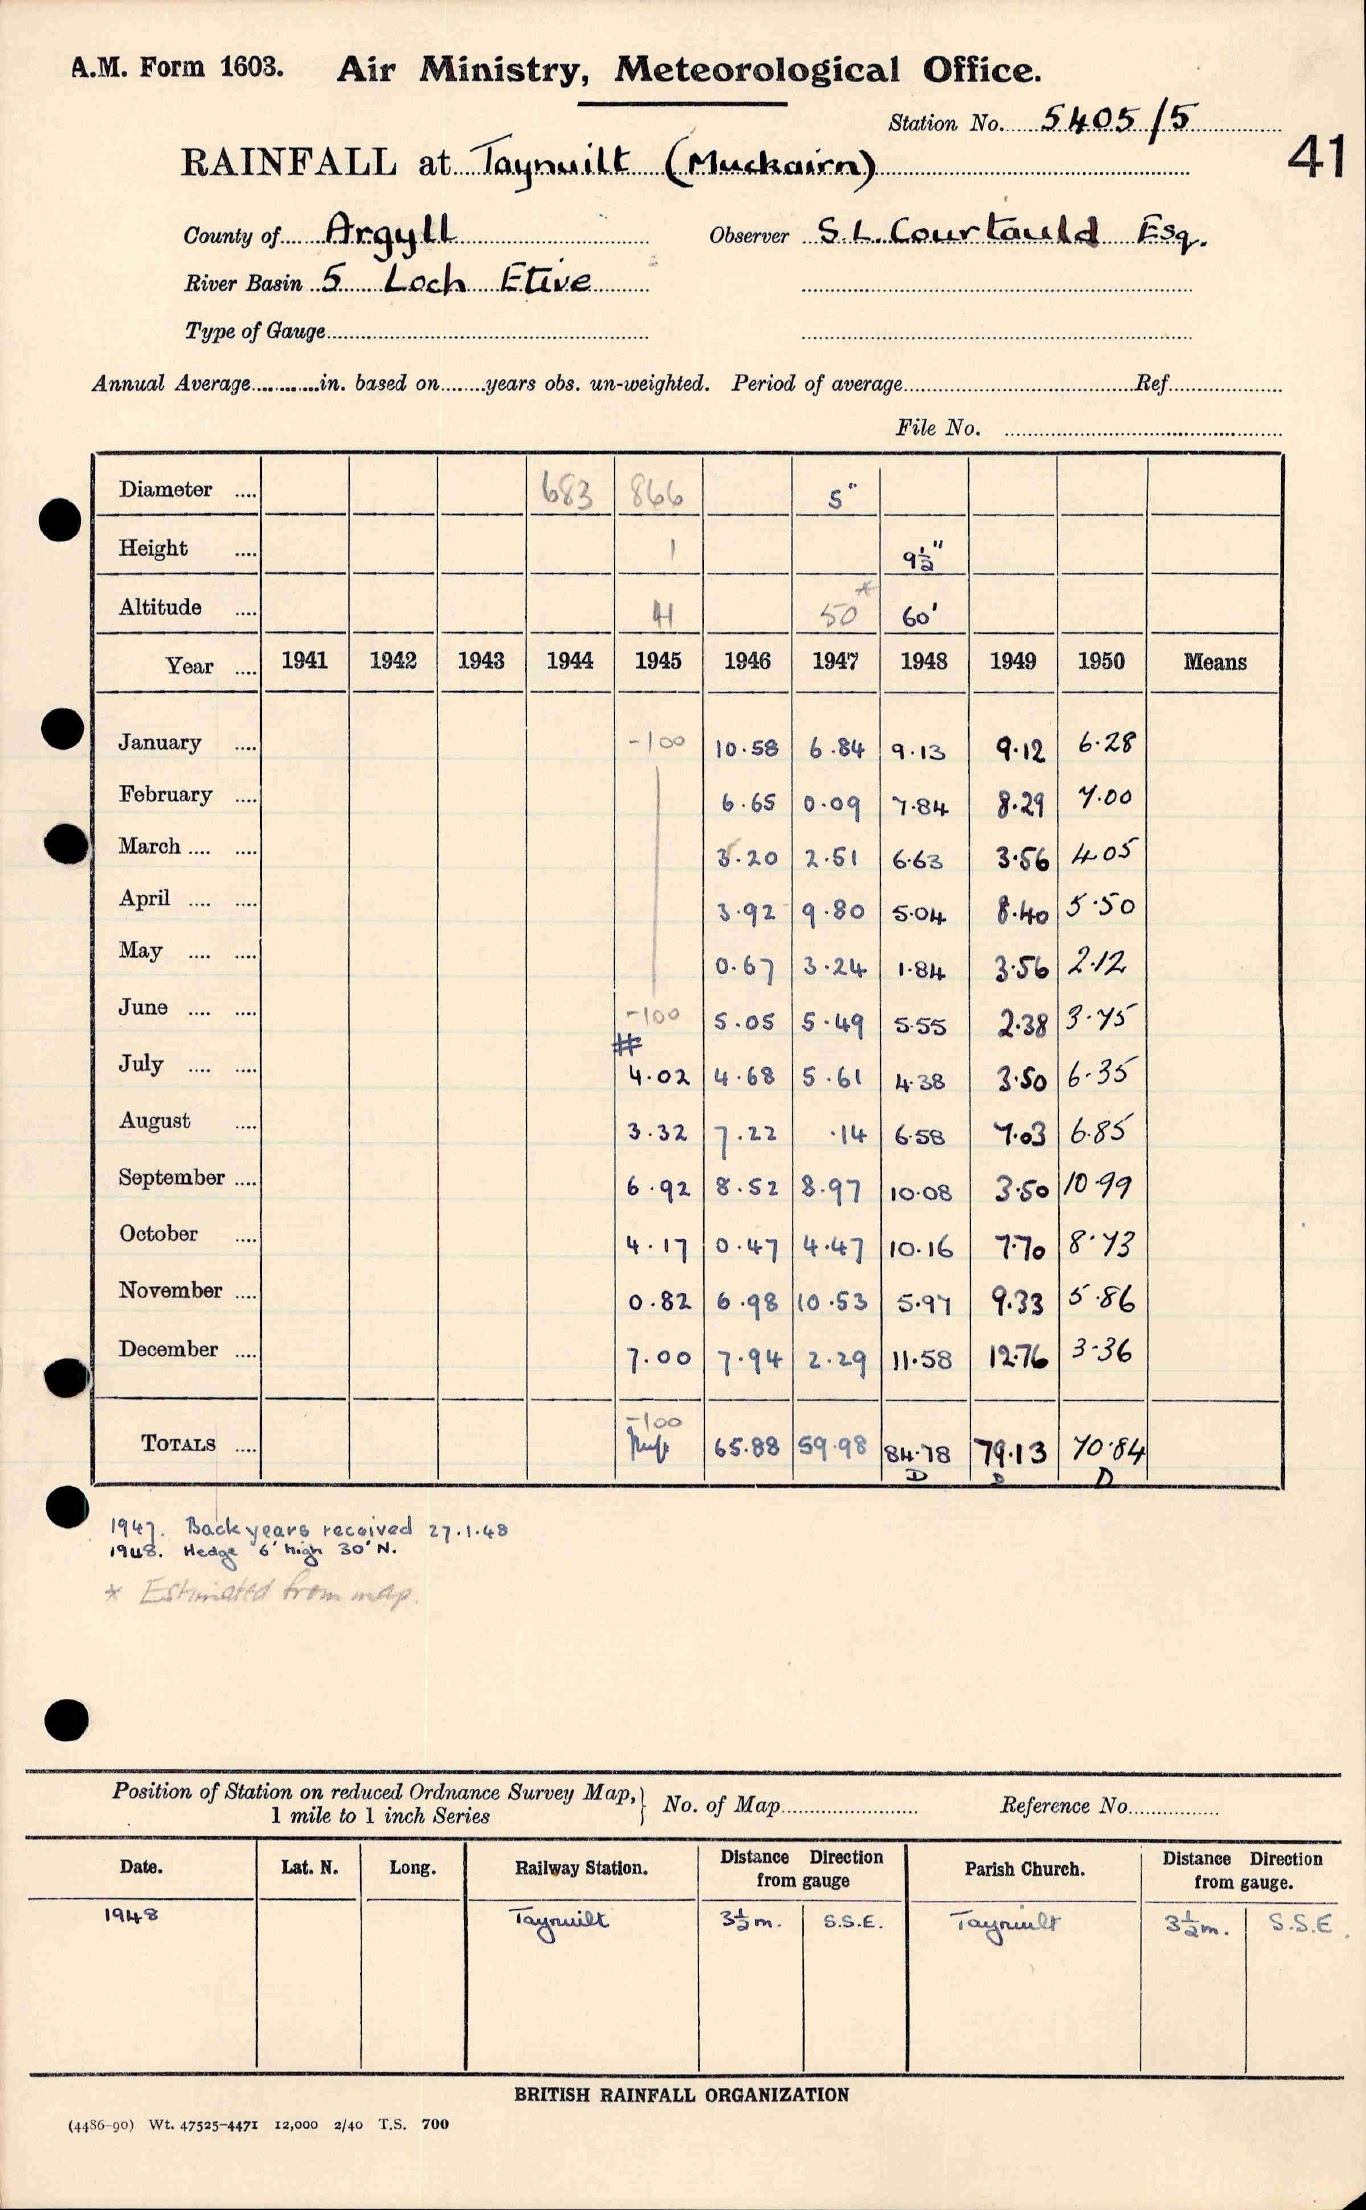 A.M. Form 1603. Air Ministry, Meteorological Office.
Station No. 5405/5
41
RAINFALL at Taynuilt (Muckairn)
County of Argyll Observer S.L. Courtauld Esq.
River Basin 5 Loch Etive
Type of Gauge
Annual Average in. based on years obs. un-weighted. Period of average Ref
File No.
Diameter 683 866 5"
Height 1 9½"
Altitude 41 50* 60'
Year 1941 1942 1943 1944 1945 1946 1947 1948 1949 1950 Means
January -100 10.58 6.84 9.13 9.12 6.28
February 6.65 0.09 7.84 8.29 7.00
March 3.20 2.51 6.63 3.56 4.05
April 3.92 9.80 5.04 8.40 5.50
May 0.67 3.24 1.84 3.56 2.12
June -100 5.05 5.49 5.55 2.38 3.75
#
July 4.02 4.68 5.61 4.38 3.50 6.35
August 3.32 7.22 .14 6.58 7.03 6.85
September 6.92 8.52 8.97 10.08 3.50 10.99
October 4.17 0.47 4.47 10.16 7.70 8.73
November 0.82 6.98 10.53 5.97 9.33 5.86
December 7.00 7.94 2.29 11.58 12.76 3.36
-100
TOTALS 65.88 59.98 84.78 79.13 70.84
D D D
1947. Back years received 27.1.48
1948. Hedge 6' high 30' N.
* Estimated from map.
Position of Station on reduced Ordnance Survey Map, No. of Map Reference No.
1 mile to 1 inch Series
Date. Lat. N. Long. Railway Station. Distance Direction from gauge Parish Church. Distance Direction from gauge.
1948 Taynuilt 3½m. S.S.E. Taynuilt 3½m. S.S.E.
BRITISH RAINFALL ORGANIZATION
(4486-90) Wt. 47525-4471 12,000 2/40 T.S. 700